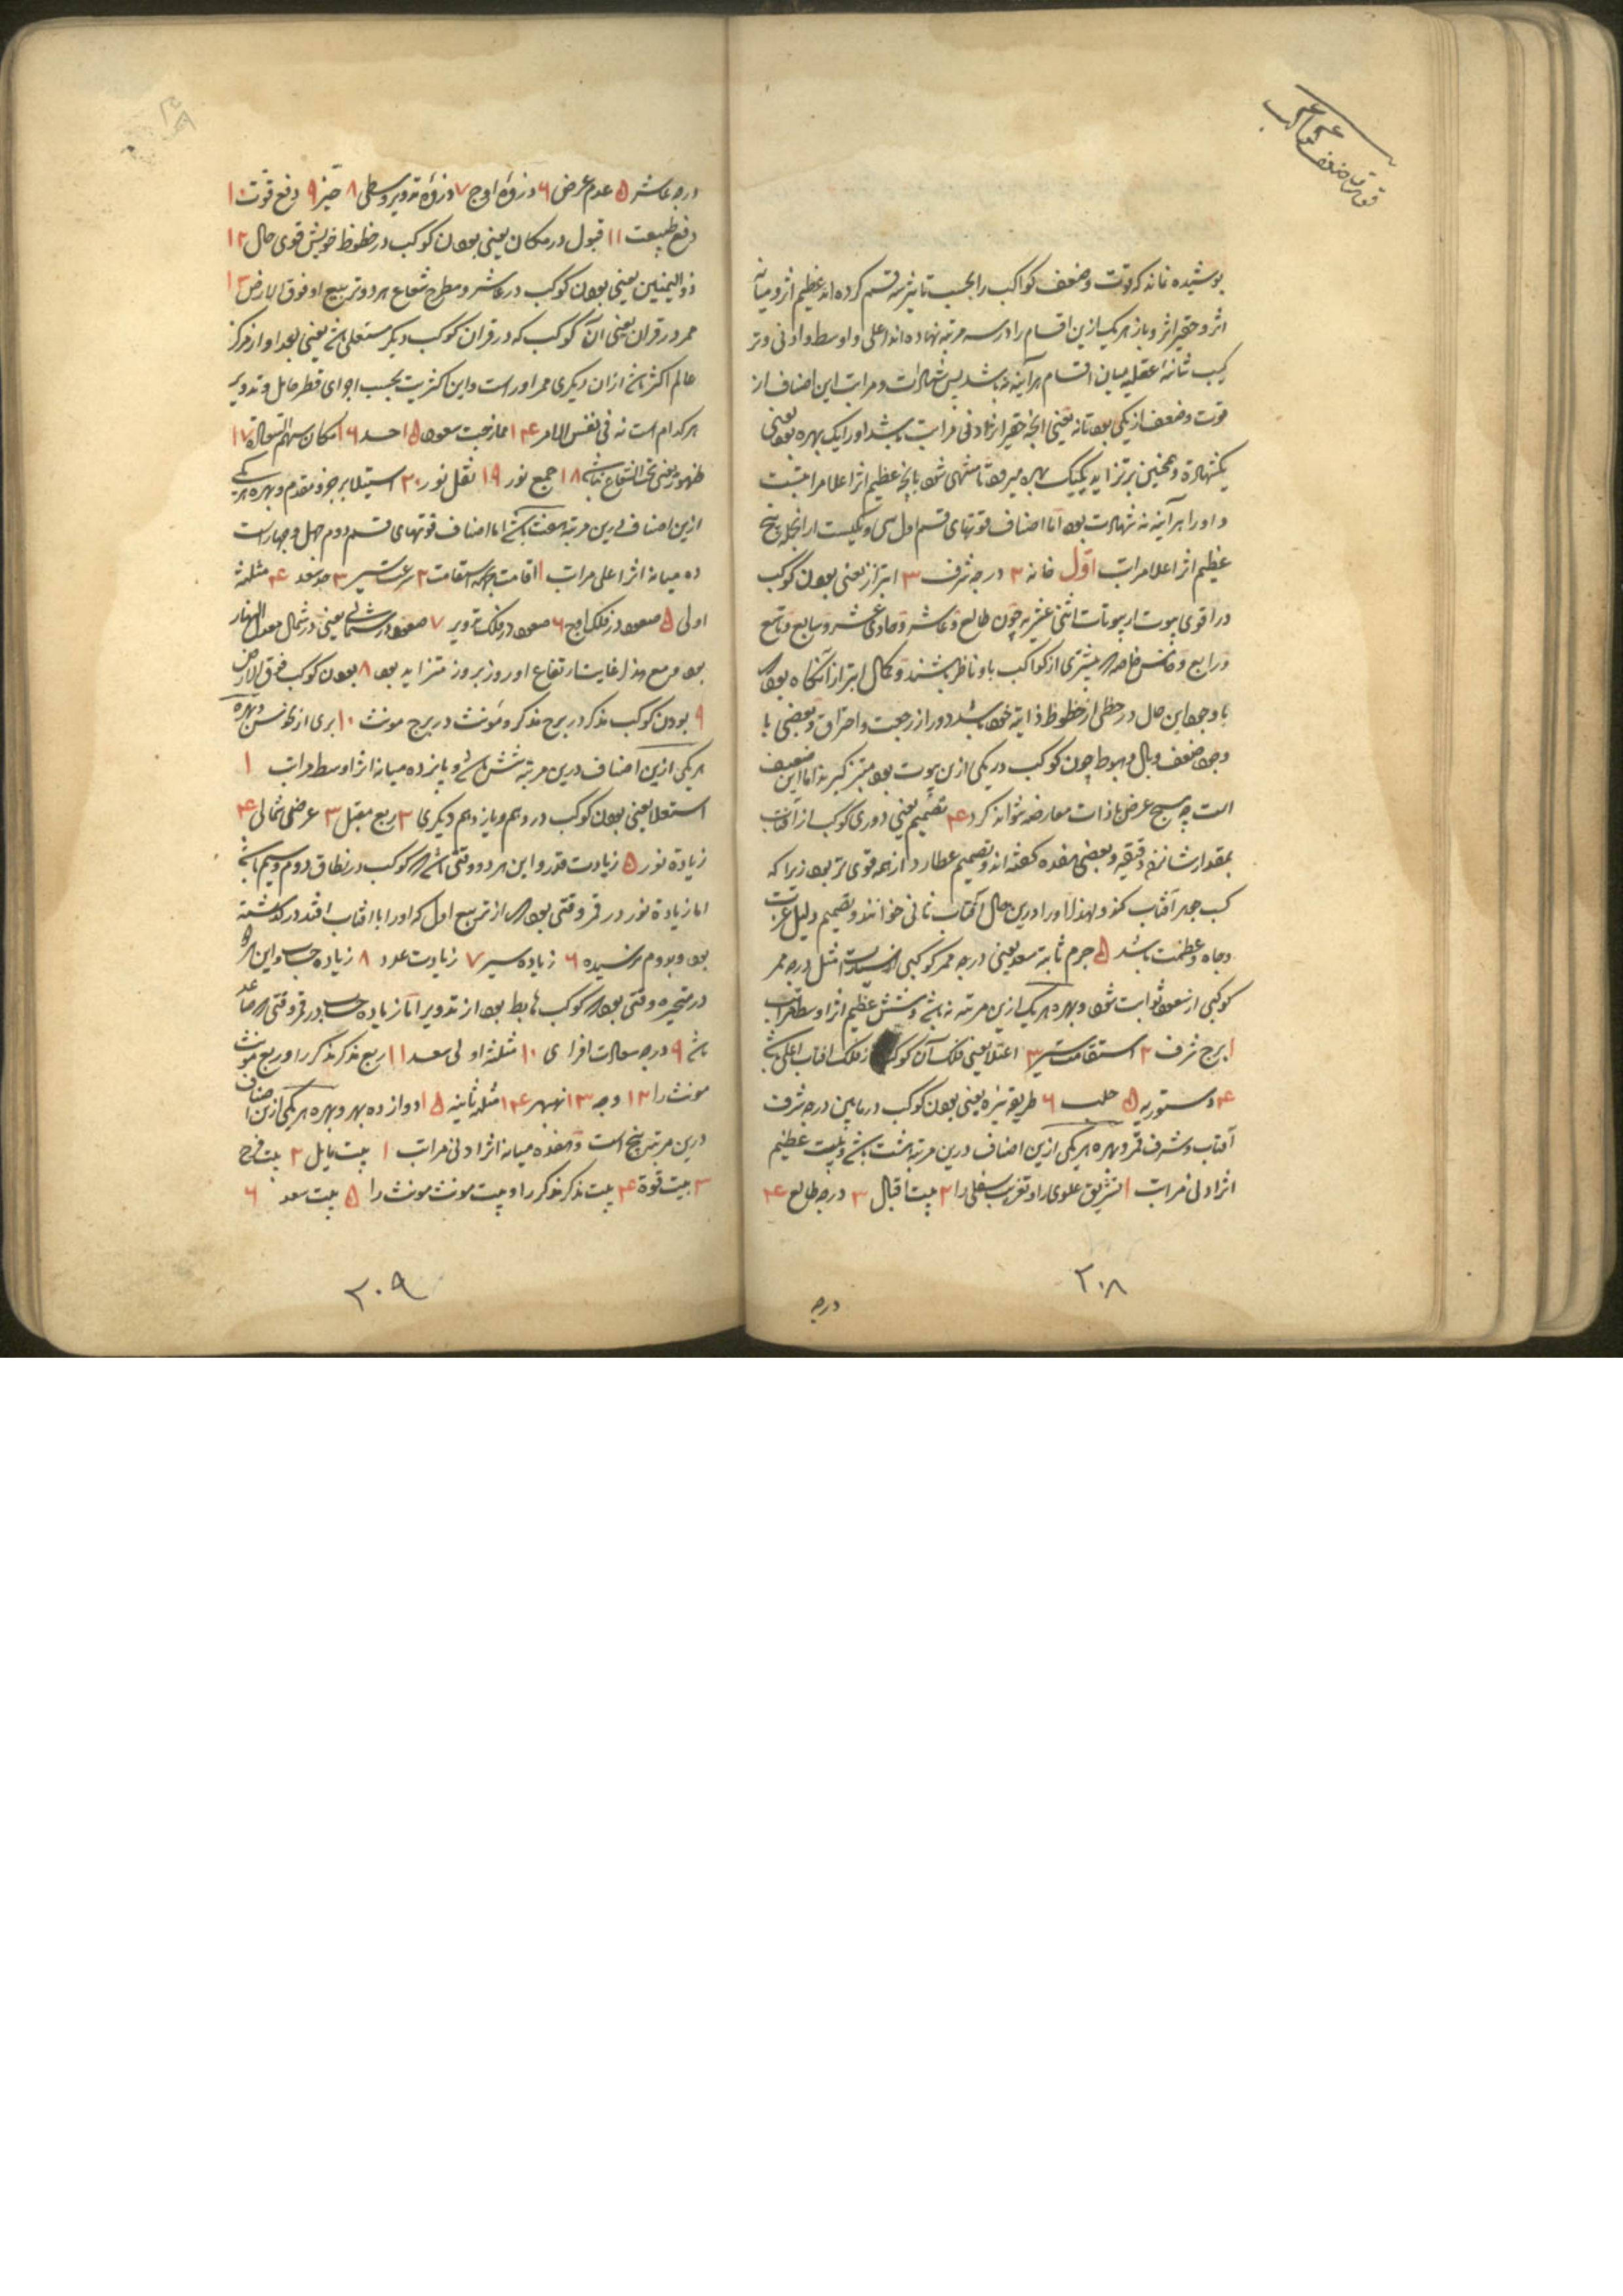 قوتها و ضعف کواکب
پوشیده نماند که قوت و ضعف کواکب را بحسب تاثیر سه قسم کرده اند عظیم اثر و میانه
اثر و حقیر اثر و باز هر یک ازین اقسام را در سه مرتبه نهاده اند اعلی و اوسط و ادنی و تر
کیب ثنائیه عقلیه میان اقسام هر آینه نه باشد پس شهادات و مراتب این اصناف از
قوت و ضعف از یکی بود تا نه یعنی آنچه حقیر اثر ادنی مراتب باشد او را یک بهره بود یعنی
یکشهادة و همچنین بر تزاید یک یک بهره میرود تا منتهی شود بآنچه عظیم اثر اعلا مراتبست
و او را هر آینه نه شهادت بود اما اصناف قوتهای قسم اول سی و یکیست از آنجمله پنج
عظیم اثر اعلا مراتب اول خانه ۲ درجه شرف ۳ ابتزاز یعنی بودن کوکب
در اقوی بیوت از بیوتات اثنی عشریه چون طالع و عاشر و حادی عشر و سابع و تاسع
و رابع و خامس خاصه که بیشتری از کواکب باو ناظر باشند و کمال ابتزاز آنگاه بود که
با وجود این حال در حظی از حظوظ ذاتیه خود باشد دور از رجعت و احتراق و بعضی با
وجود ضعف وبال و هبوط چون کوکب در یکی ازین بیوت بود مبتز گیرند اما این ضعیف
است چه هیچ عرض با ذات معارضه نتواند کرد ۴ تصمیم یعنی دوری کوکب از آفتاب
بمقدار شانزده دقیقه و بعضی هفده گفته اند و تصمیم عطارد از همه قوی تر بود زیرا که
کسب جوهر آفتاب کند و لهذا او را درین حال آفتاب ثانی خوانند و تصمیم دلیل عزت
و جاه و عظمت باشد ۵ جرم ثابته سعد یعنی درجه ممر کوکبی از سیارات مثل درجه ممر
کوکبی از سعود ثوابت شود و بهره هر یک ازین مرتبه نه باشد و شش عظیم اثر اوسط مراتب
۱ برج شرف ۲ استقامت سیر ۳ اعتلا یعنی فلک آن کوکب از فلک آفتاب اعلی باشد
۴ دستوریه ۵ حلب ۶ طریقه نیره یعنی بودن کوکب در مابین درجه شرف
آفتاب و شرف قمر و بهره هر یکی ازین اصناف درین مرتبه هشت باشد و بیست عظیم
اثر ادنی مراتب ۱ تشریق علوی را و تغریب سفلی را ۲ بیت اقبال ۳ درجه طالع ۴
درجه
۲۰۸
درجه عاشر ۵ عدم عرض ۶ ذروۀ اوج ۷ ذروۀ تدویر وسطی ۸ حیز ۹ دفع قوت ۱۰
دفع طبیعت ۱۱ قبول در مکان یعنی بودن کوکب در حظوظ خویش قوی حال ۱۲
ذو الیمینین یعنی بودن کوکب در عاشر و مطرح شعاع هر دو تربیع او فوق الارض ۱۳
ممر در قران یعنی آن کوکب که در قران کوکب دیگر مستعلی باشد یعنی بعد او از مرکز
عالم اکثر باشد از آن دیگری ممر او راست و این اکثریت بحسب اجزای قطر حامل و تدویر
هر کدام است نه فی نفس الامر ۱۴ ممازجت سعود ۱۵ حد ۱۶ مکان سهم السعادة ۱۷
ظهور یعنی تحت الشعاع نباشد ۱۸ جمع نور ۱۹ نقل نور ۲۰ استیلا بر جزو مقدم و بهره هر یکی
ازین اصناف درین مرتبه هفت باشد اما اصناف قوتهای قسم دوم چهل و چهار است
ده میانه اثر اعلی مراتب ۱ اقامت جهة استقامت ۲ سرعت سیر ۳ حد سعد ۴ مثلثه
اولی ۵ صعود در فلک اوج ۶ صعود در فلک تدویر ۷ صعود در شمالی یعنی در شمال معدل النهار
بود و مع هذا غایت ارتفاع او روز بروز متزاید بود ۸ بودن کوکب فوق الارض
۹ بودن کوکب مذکر در برج مذکر و مونث در برج مونث ۱۰ بری از نحوس و بهره
هر یکی ازین اصناف درین مرتبه شش باشد و پانزده میانه اثر اوسط مراتب ۱
استعلا یعنی بودن کوکب در دهم و یازدهم دیگری ۲ ربع مقبل ۳ عرض شمالی ۴
زیادة نور ۵ زیادت قدر و این هر دو وقتی باشد که کوکب در نطاق دوم و سیم باشد
اما زیادة نور در قمر وقتی بود که از تربیع اول که او را با آفتاب افتد در گذشته
بود و بدوم نرسیده ۶ زیاده سیر ۷ زیادت عدد ۸ زیاده حساب و این هر دو
در متحیره وقتی بود که کوکب هابط بود از تدویر اما زیاده حساب در قمر وقتی که صاعد
باشد ۹ درجه سعادت افزای ۱۰ مثلثه اولی سعد ۱۱ ربع مذکر مذکر را و ربع مونث
مونث را ۱۲ وجه ۱۳ نهبهر ۱۴ مثلثه ثانیه ۱۵ دوازده بهر و بهره هر یکی ازین اصناف
درین مرتبه پنج است و هفده میانه اثر ادنی مراتب ۱ بیت مایل ۲ بیت فرح
۳ بیت قوة ۴ بیت مذکر مذکر را و بیت مونث مونث را ۵ بیت سعد ۶
۲۰۹